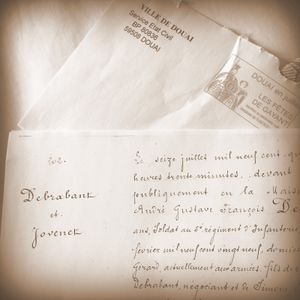 VILLE DE DOUAI
Service Etat Civil
BP 80836
59508 DOUAI
DOUAI en juillet
LES FÊTES
DE GAYANT
Debrabant
et
Jovenet
Le seize juillet mil neuf cent qu
heures trente minutes, devant
publiquement en la Mais
André Gustave François De
ans, Soldat au 8e régiment d'Infanterie
février mil neuf cent vingt neuf, domi
Gérard actuellement aux armées, fils d
Debrabant, négociant et de Simone